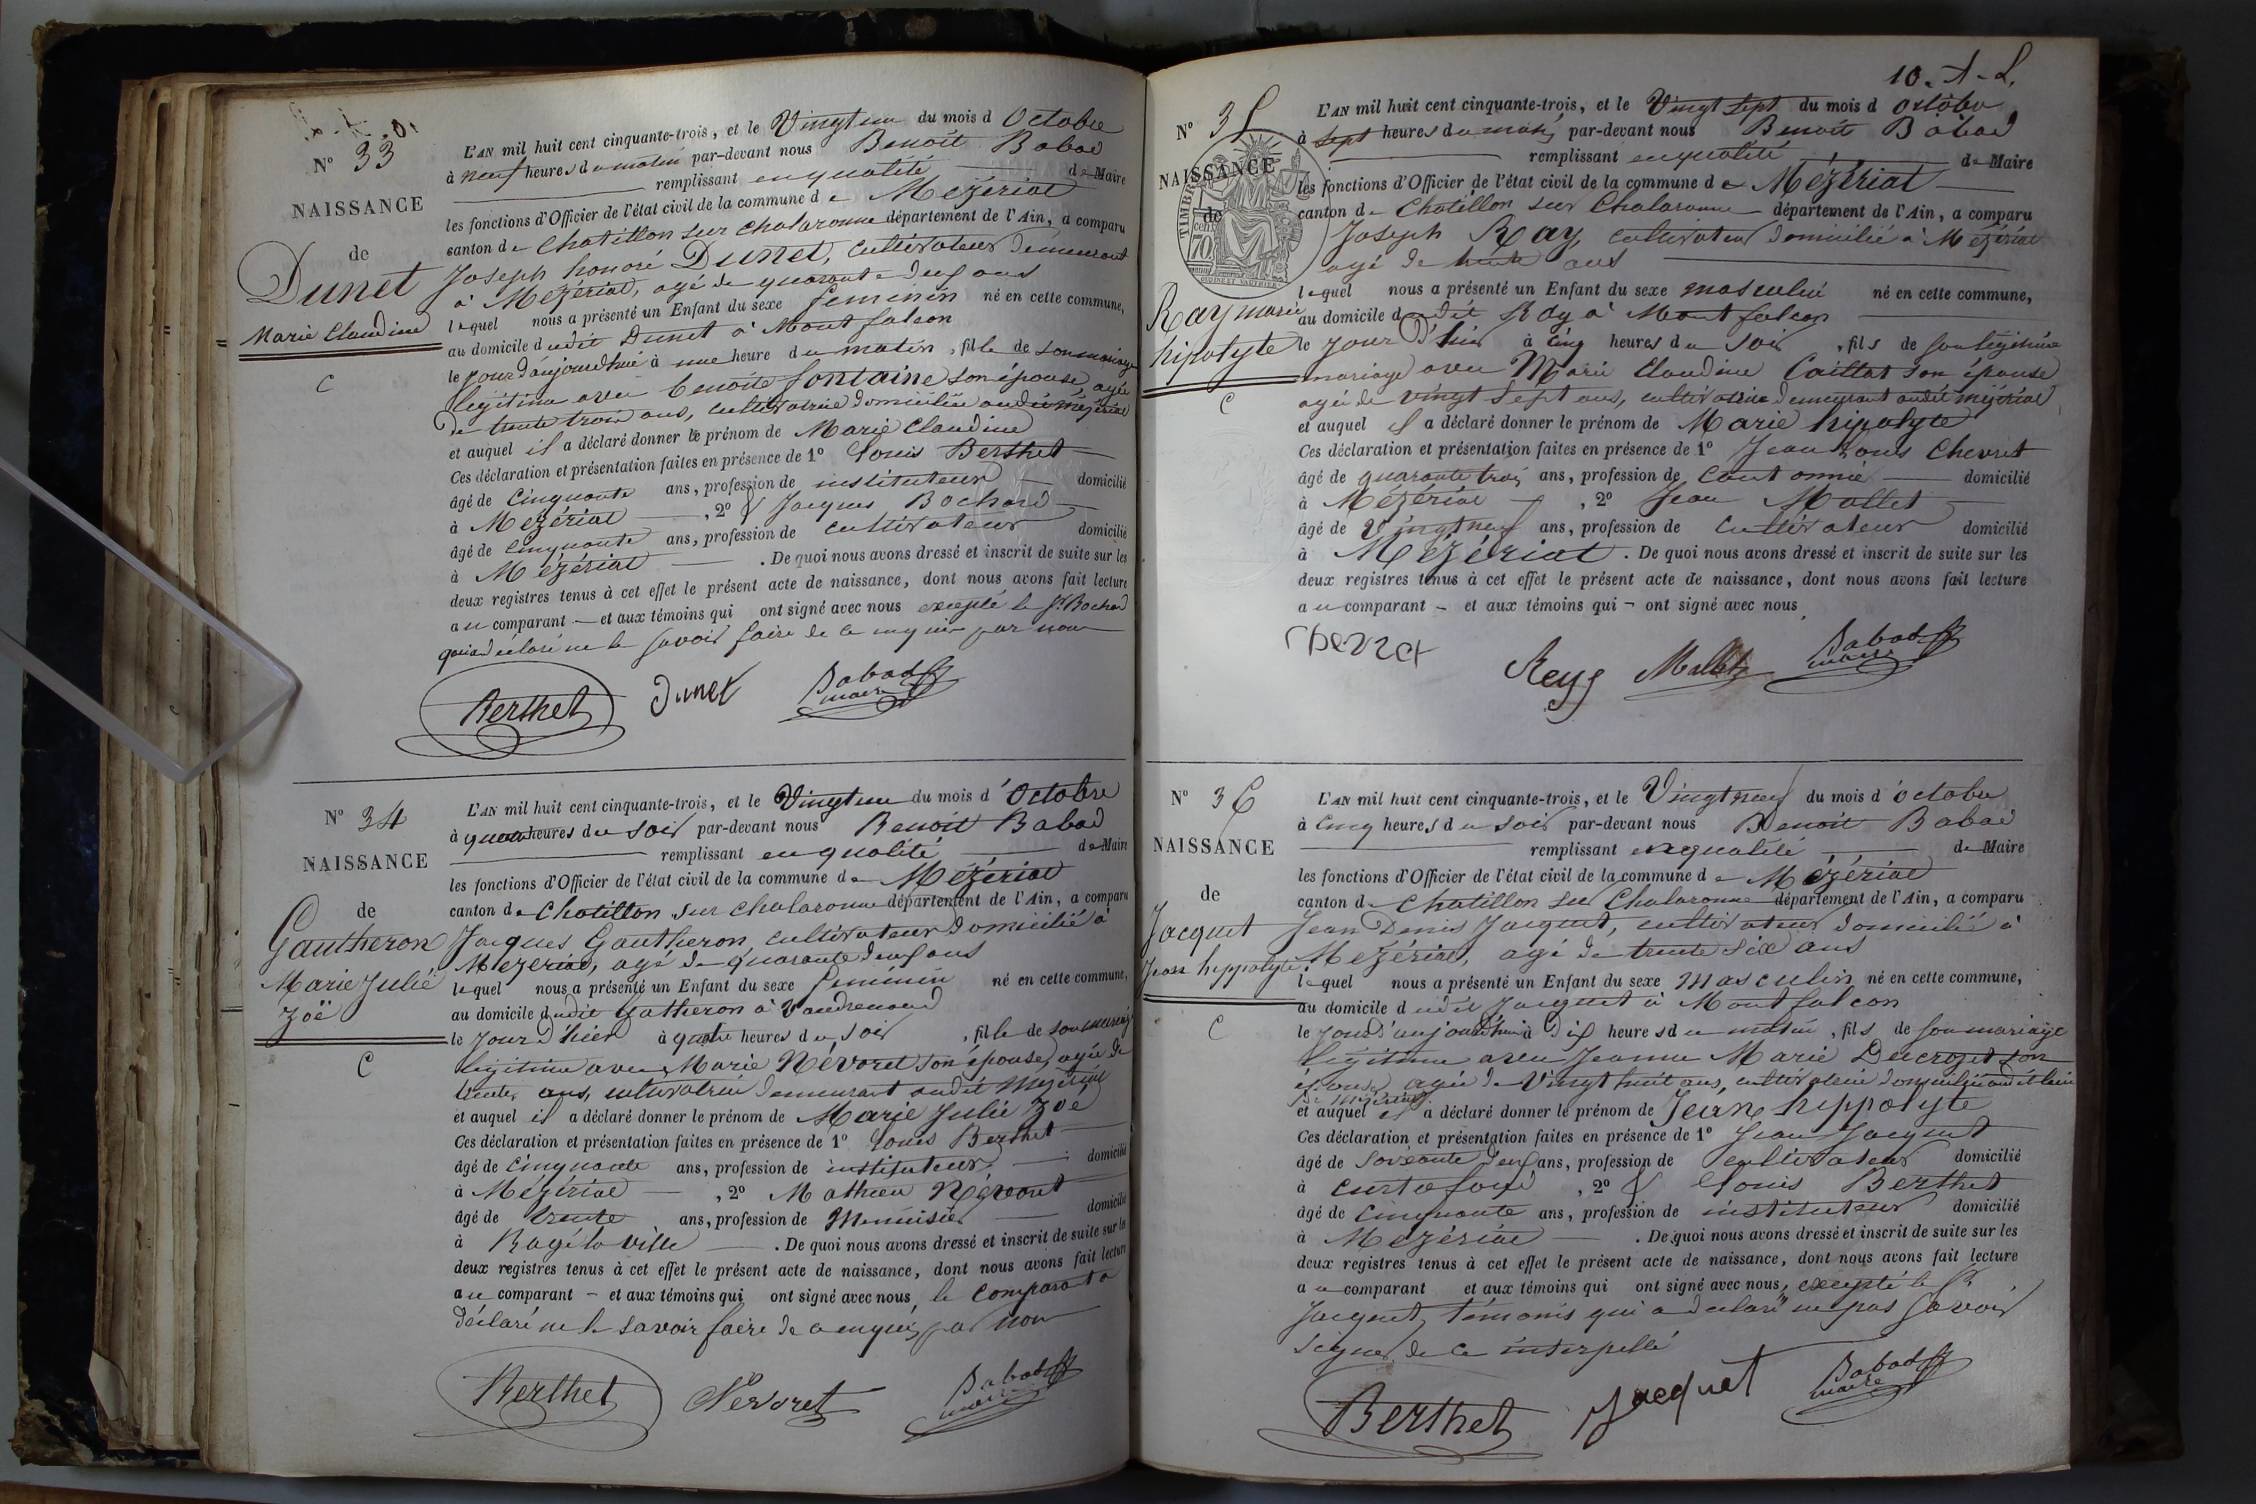 N° 33
NAISSANCE
de
Dunet
Marie Claudine
C
L'AN mil huit cent cinquante-trois, et le Vingt un du mois d Octobre
à neuf heures du matin par-devant nous Benoit Babad
remplissant en qualité de Maire
les fonctions d'Officier de l'état civil de la commune de Mézériat
canton de Chatillon sur Chalaronne département de l'Ain, a comparu
Joseph honoré Dunet, cultivateur demeurant
à Mézériat, agé de quarante deux ans
lequel nous a présenté un Enfant du sexe feminin né en cette commune,
au domicile dudit Dunet à Montfalcon
le jour d'aujourdhui à une heure du matin, fille de son mariage
legitime avec benoite fontaine son épouse, agée
de trente trois ans, cultivatrice domiciliée audit mézériat
et auquel il a déclaré donner le prénom de Marie Claudine
Ces déclaration et présentation faites en présence de 1° Louis Berthet
âgé de Cinquante ans, profession de instituteur domicilié
à Mézériat, 2° & Jacques Bochard
âgé de Cinquante ans, profession de cultivateur domicilié
à Mézériat. De quoi nous avons dressé et inscrit de suite sur les
deux registres tenus à cet effet le présent acte de naissance, dont nous avons fait lecture
au comparant et aux témoins qui ont signé avec nous excepté le Sr Bochard
qui a déclaré ne le savoir faire de ce enquis par nous
Berthet Dunet Babad
maire
N° 34
NAISSANCE
de
Gautheron
Marie Julie
zoë
C
L'AN mil huit cent cinquante-trois, et le Vingt un du mois d'Octobre
à quatre heures du soir par-devant nous Benoit Babad
remplissant en qualité de Maire
les fonctions d'Officier de l'état civil de la commune de Mézériat
canton de Chatillon sur Chalaronne département de l'Ain, a comparu
Jacques Gautheron, cultivateur domicilié à
Mezeriat, agé de quarante deux ans
lequel nous a présenté un Enfant du sexe feminin né en cette commune,
au domicile dudit Gatheron à
le jour d'hier à quatre heures du soir, fille de son mariage
legitime avec Marie Névoret son épouse, agée de
trente ans, cultivatrice demeurant audit Mezériat
et auquel il a déclaré donner le prénom de Marie Julie Zoé
Ces déclaration et présentation faites en présence de 1° Louis Berthet
âgé de Cinquante ans, profession de instituteur domicilié
à Mézériat, 2° Mathieu Névoret
âgé de trente ans, profession de Menuisier domicilié
à Bagé la ville. De quoi nous avons dressé et inscrit de suite sur les
deux registres tenus à cet effet le présent acte de naissance, dont nous avons fait lecture
au comparant et aux témoins qui ont signé avec nous, le Comparant a
déclaré ne le savoir faire de ce enquis par nous
Berthet Nevoret Babad
maire
10. A-L.
N° 35
NAISSANCE
de
TIMBRE
70
Ray marie
hipolyte
C
L'AN mil huit cent cinquante-trois, et le Vingt sept du mois d Octobre
à sept heures du matin par-devant nous Benoit Babad
remplissant en qualité de Maire
les fonctions d'Officier de l'état civil de la commune de Mézériat
canton de Chatillon sur Chalaronne département de l'Ain, a comparu
Joseph Ray, cultivateur domicilié à Mézériat
agé de trente ans
lequel nous a présenté un Enfant du sexe masculin né en cette commune,
au domicile dudit Ray à Montfalcon
le jour d'hier à Cinq heures du soir, fils de son légitime
mariage avec Marie Claudine Caillat son épouse
agée de vingt sept ans, cultivatrice demeurant audit mézériat
et auquel il a déclaré donner le prénom de Marie hipolyte
Ces déclaration et présentation faites en présence de 1° Jean Louis Chevret
âgé de quarante trois ans, profession de Cantonnié domicilié
à Mézériat, 2° Jean Mallet
âgé de Vingt neuf ans, profession de Cultivateur domicilié
à Mézériat. De quoi nous avons dressé et inscrit de suite sur les
deux registres tenus à cet effet le présent acte de naissance, dont nous avons fait lecture
au comparant et aux témoins qui ont signé avec nous
Rey Mallet Babad
maire
N° 36
NAISSANCE
de
Jacquet
Jean hippolyte
C
L'AN mil huit cent cinquante-trois, et le Vingt neuf du mois d'octobre
à Cinq heures du soir par-devant nous Benoit Babad
remplissant en qualité de Maire
les fonctions d'Officier de l'état civil de la commune de Mézériat
canton de Chatillon sur Chalaronne département de l'Ain, a comparu
Jean Denis Jacquet, cultivateur domicilié à
Mezériat, agé de trente six ans
lequel nous a présenté un Enfant du sexe masculin né en cette commune,
au domicile dudit Jacquet à Montfalcon
le jour d'aujourd'hui à dix heures du matin, fils de son mariage
légitime avec Jeanne Marie Decrozet son
épouse, agée de Vingt huit ans, cultivatrice domiciliée audit lieu
de mézériat
et auquel il a déclaré donner le prénom de Jean hippolyte
Ces déclaration et présentation faites en présence de 1° Jean Jacquet
âgé de soixante deux ans, profession de cultivateur domicilié
à Curtafond, 2° & Louis Berthet
âgé de Cinquante ans, profession de instituteur domicilié
à Mezériat. De quoi nous avons dressé et inscrit de suite sur les
deux registres tenus à cet effet le présent acte de naissance, dont nous avons fait lecture
au comparant et aux témoins qui ont signé avec nous, excepté le Sr
Jacquet, témoins qui a declaré ne pas savoir
signer de ce interpellé
Berthet Jacquet Babad
maire